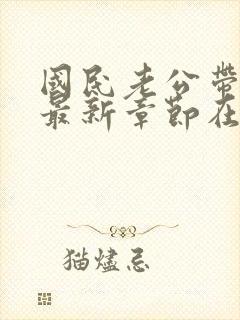 國民老公帶
最新章節在
猫燼忌